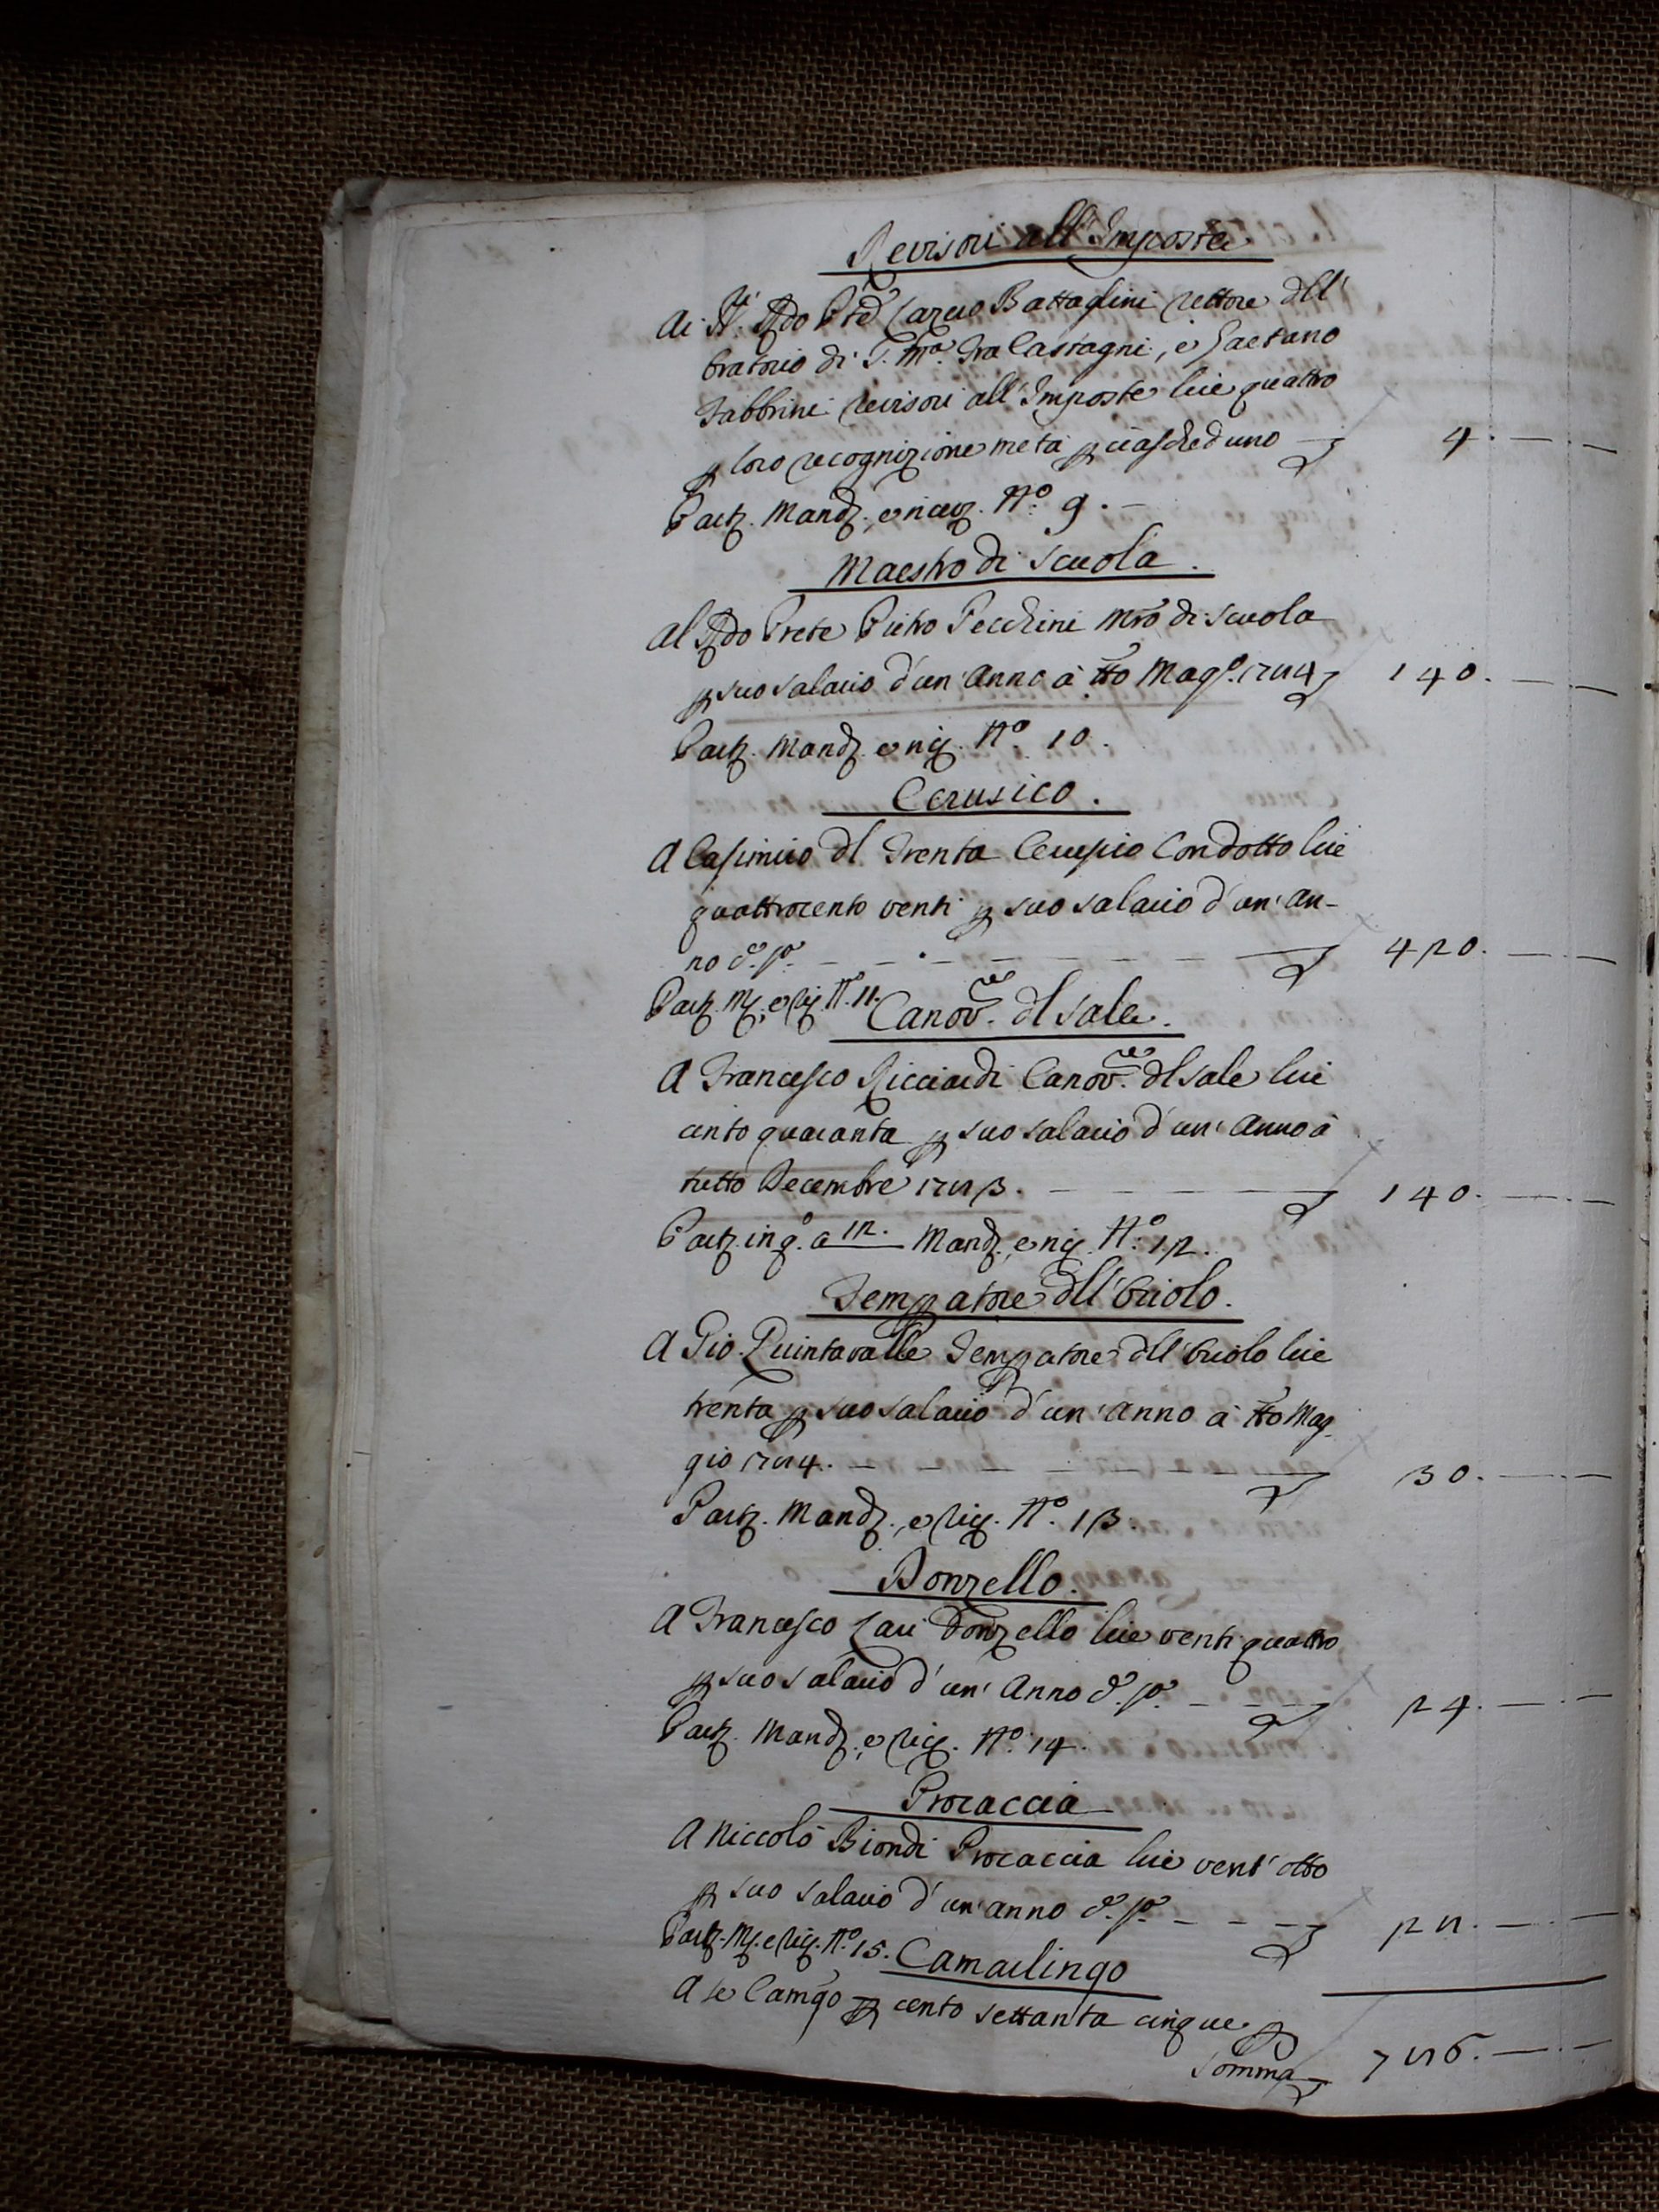 Revisori all'Imposte
Ai SS.ri Rdo Pre Lazzero Battaglini Rettore dll'
Oratorio di S. Ma. Tra Castagni, e Gaetano
Fabbrini revisori all'Imposte lire quattro
p loro recognizione metà p ciascheduno 4. — . —
Part. Mand. e ricev. No. 9. —
Maestro di Scuola.
Al Rdo Prete Pietro Pecchini Mro di scuola
p suo salario d'un'Anno à tto Magg.o 1784 140. — . —
Part. Mand. e ric. No. 10.
Cerusico.
A Casimiro dl Trenta Cerusico Condotto lire
quattrocento venti p suo salario d'un'An-
no d.o s.o — — — — — — 420. — . —
Part. M. e ric. No. 11.
Canov.re dl Sale.
A Francesco Ricciardi Canov.re dl sale lire
cento quaranta p suo salario d'un'Anno à
tutto Decembre 1783. — — — — 140. — . —
Part. in q.o a 12. Mand. e ric. No. 12.
Tempatore dll'Oriolo.
A Gio. Quintavalle Tempatore dll'Oriolo lire
trenta p suo salario d'un'anno à tto Mag-
gio 1784. — — — — — — 30. — . —
Part. Mand. e ric. No. 13.
Donzello.
A Francesco Lari Donzello lire venti quattro
p suo salario d'un'Anno d.o s.o — — — 24. — . —
Part. Mand. e ric. No. 14.
Procaccia
A Niccolò Biondi Procaccia lire vent'otto
p suo salario d'un'anno d.o s.o — — — 28. — . —
Part. M. e ric. No. 15.
Camarlingo
A se Camgo p cento settanta cinque p
Somma 786. — . —